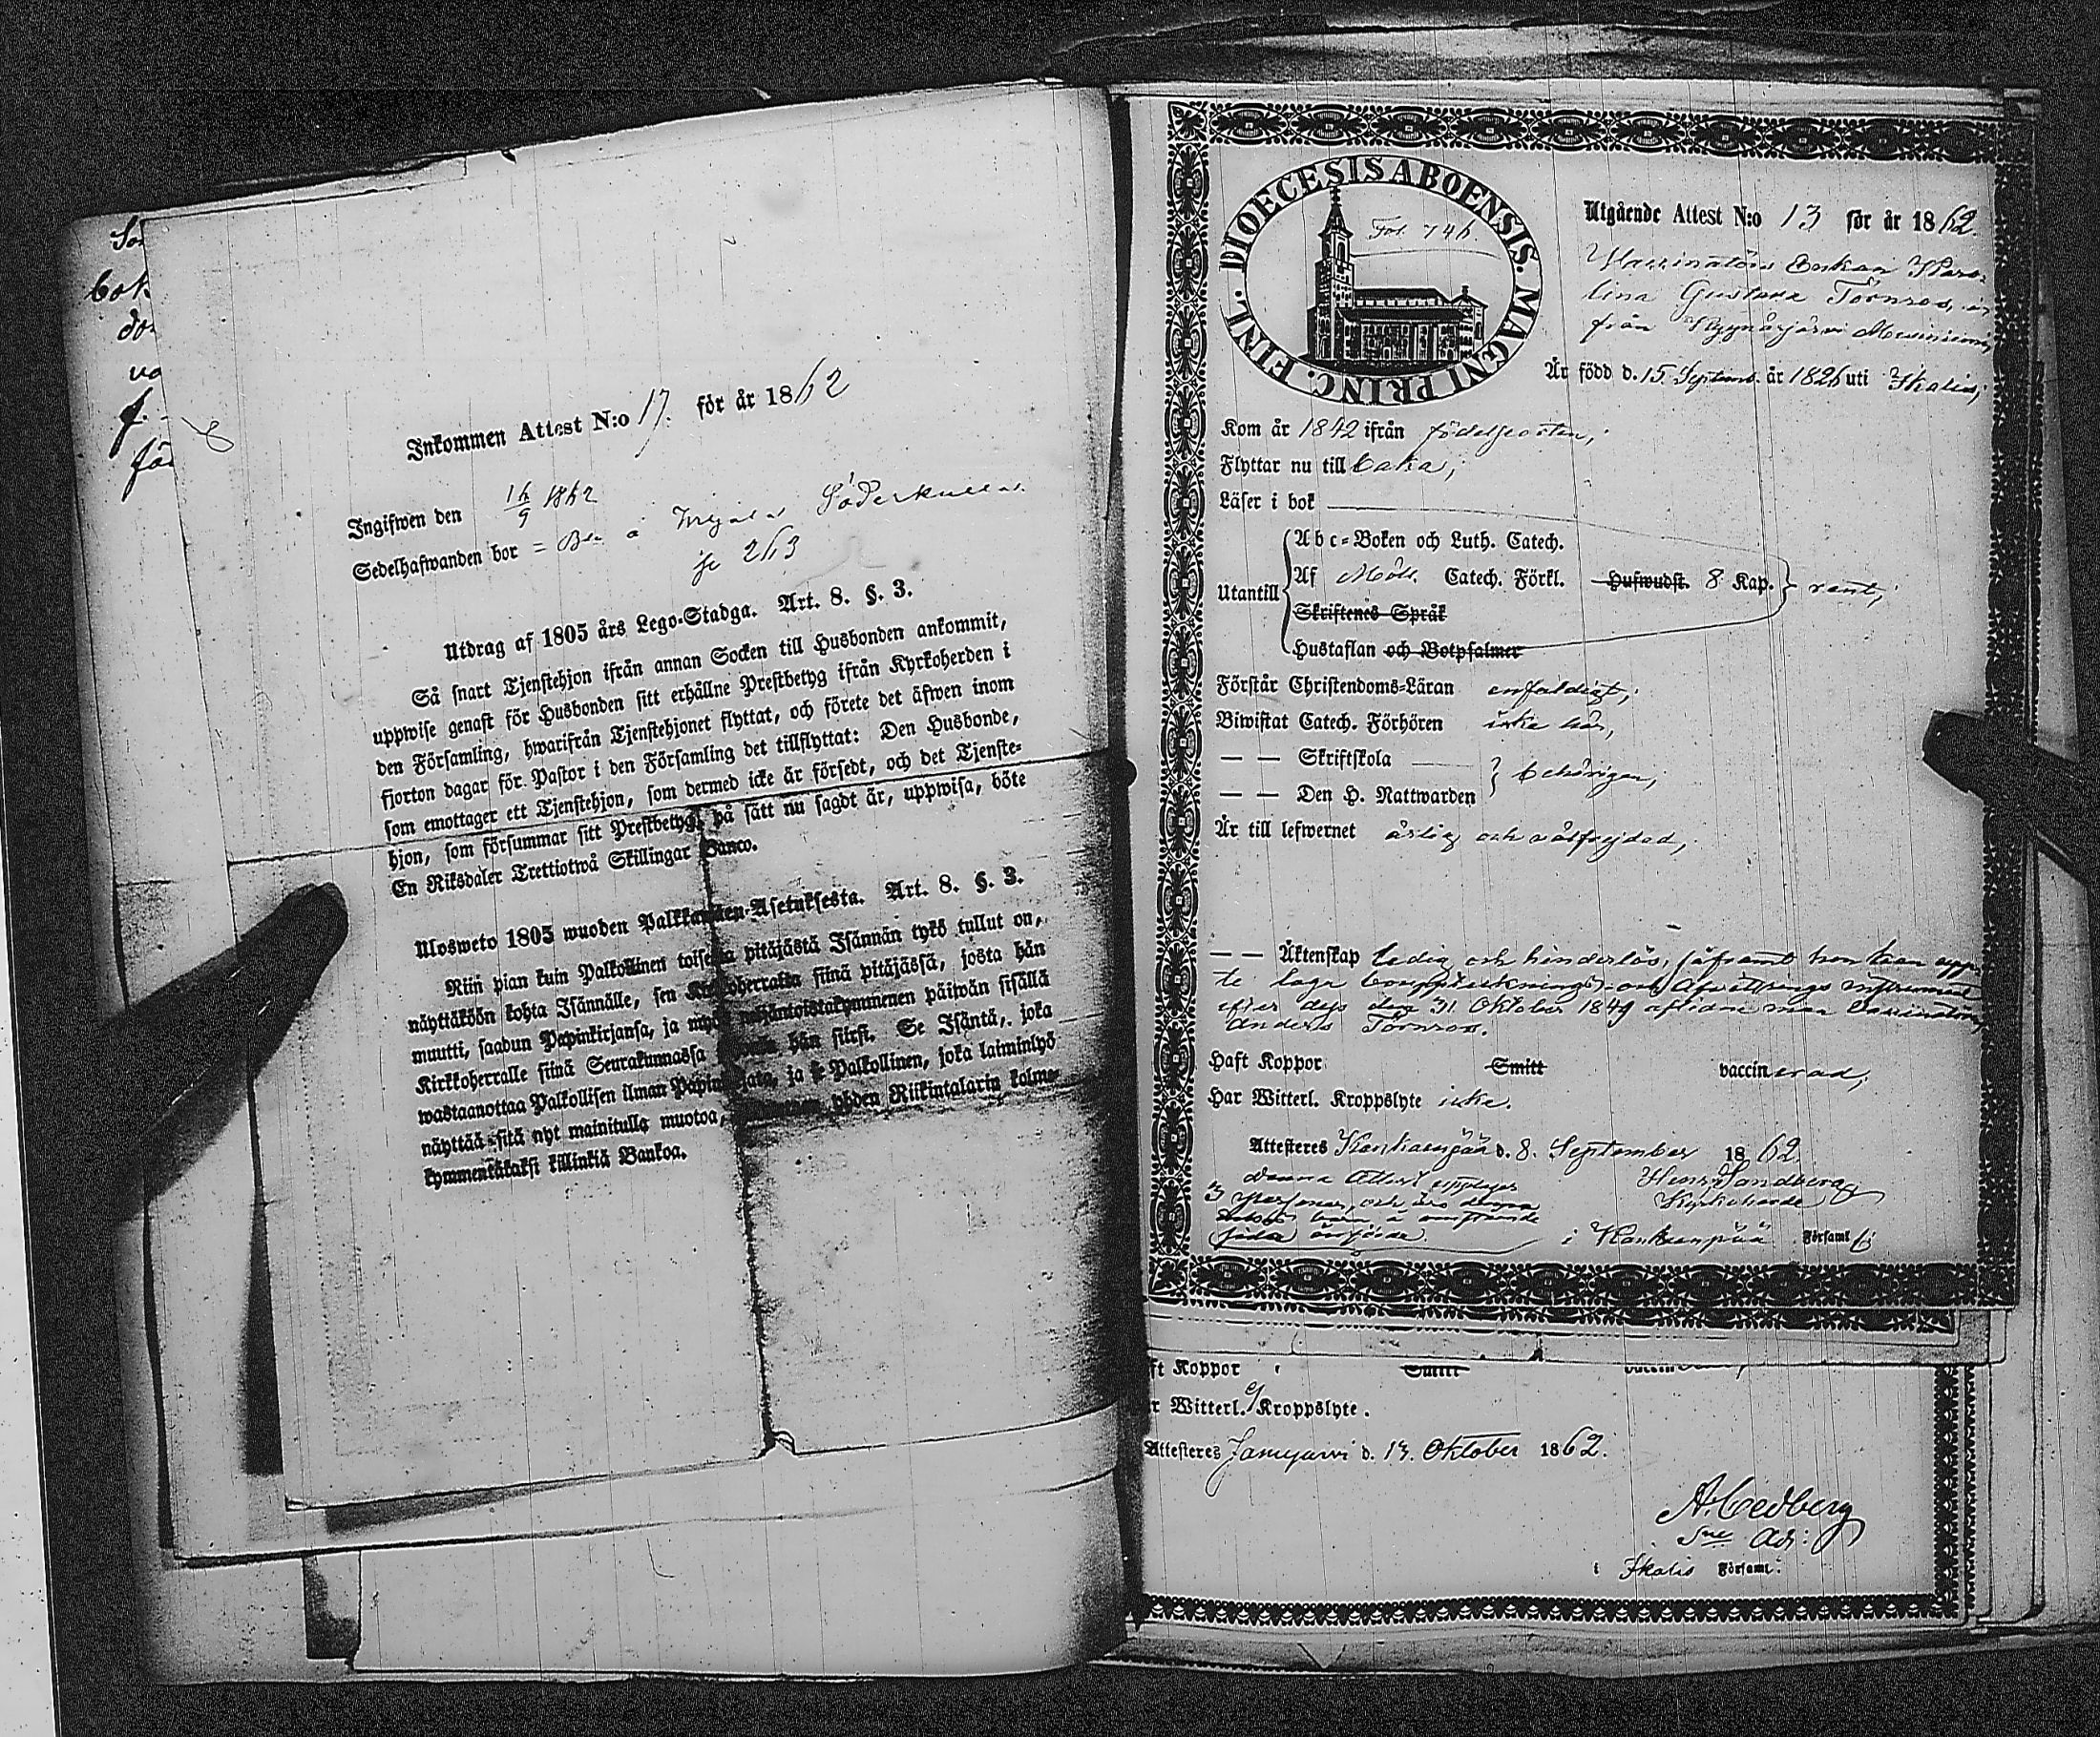 Inkommen Attest N:o 17. för år 1862
Ingifwen den 16/9 1862
Sedelhafwanden bor = Ben å Söderkulla
263
Utdrag af 1805 års Lego-Stadga. Art. 8. §. 3.
Så snart Tjenstehjon ifrån annan Socken till Husbonden ankommit,
uppwise genast för Husbonden sitt erhållne Prestbetyg ifrån Kyrkoherden i
den Församling, hwarifrån Tjenstehjonet flyttat, och förete det äfwen inom
fjorton dagar för Pastor i den Församling det tillflyttat: Den Husbonde,
som emottager ett Tjenstehjon, som dermed icke är försedt, och det Tjenste-
hjon, som försummar sitt Prestbetyg, på sätt nu sagdt är, uppwisa, böte
En Riksdaler Trettiotwå Skillingar Banco.
Ulosweto 1805 wuoden Palkkawäen-Asetuksesta. Art. 8. §. 3.
Niin pian kuin Palkollinen toisesta pitäjästä Isännän tykö tullut on,
näyttäköön kohta Isännälle, sen Kirkkoherralta siinä pitäjässä, josta hän
muutti, saadun Papinkirjansa, ja myös neljäntoistakymmenen päiwän sisällä
Kirkkoherralle siinä Seurakunnassa hän siirsi. Se Isäntä, joka
wastaanottaa Palkollisen ilman Papinkirjata, ja se Palkollinen, joka laiminlyö
näyttää sitä nyt mainitulla muotoa, yhden Riikintalarin kolme-
kymmentäkaksi killinkiä Bankoa.
DIOECESIS ABOENSIS. MAGNI PRINC. FINL.
Fol. 746.
Utgående Attest N:o 13 för år 1862.
Vaccinatörs Enkan Karo-
lina Gustava Törnroos, är
från Kyynärjärvi
Är född d. 15. Septemb. år 1826 uti Ikalis;
Kom år 1842 ifrån födelseorten;
Flyttar nu till baka;
Läser i bok
Utantill
Abc-Boken och Luth. Catech.
Af Möll. Catech. Förkl. Hufwudst. 8 Kap. rent;
Skriftenes Språk
Hustaflan och Botpsalmer
Förstår Christendoms-Läran enfaldigt;
Biwistat Catech. Förhören icke här,
— — Skriftskola
— — Den H. Nattwarden behörigen;
Är till lefwernet ärlig och välfrejdad,
— — Äktenskap ledig och hinderlös, såframt hon kan uppte-
te laga bouppteknings- och Afvittrings instrument
efter dess den 31 Oktober 1849 aflidne man Vaccinatören
Anders Törnroos.
Haft Koppor Smitt vaccinerad;
Har Witterl. Kroppslyte icke.
Attesteres Kankaanpää d. 8. September 1862.
Denna Attest upptager
3 Personer, och äro dessa
barn å omstående
sida införde.
Henr. Sandberg
Kyrkoherde
i Kankaanpää Församl.
ft Koppor Smitt
r Witterl. Kroppslyte.
Attesteres Jämijärvi d. 13. Oktober 1862.
A. Cedberg
Sne Adj:
i Ikalis Församl.